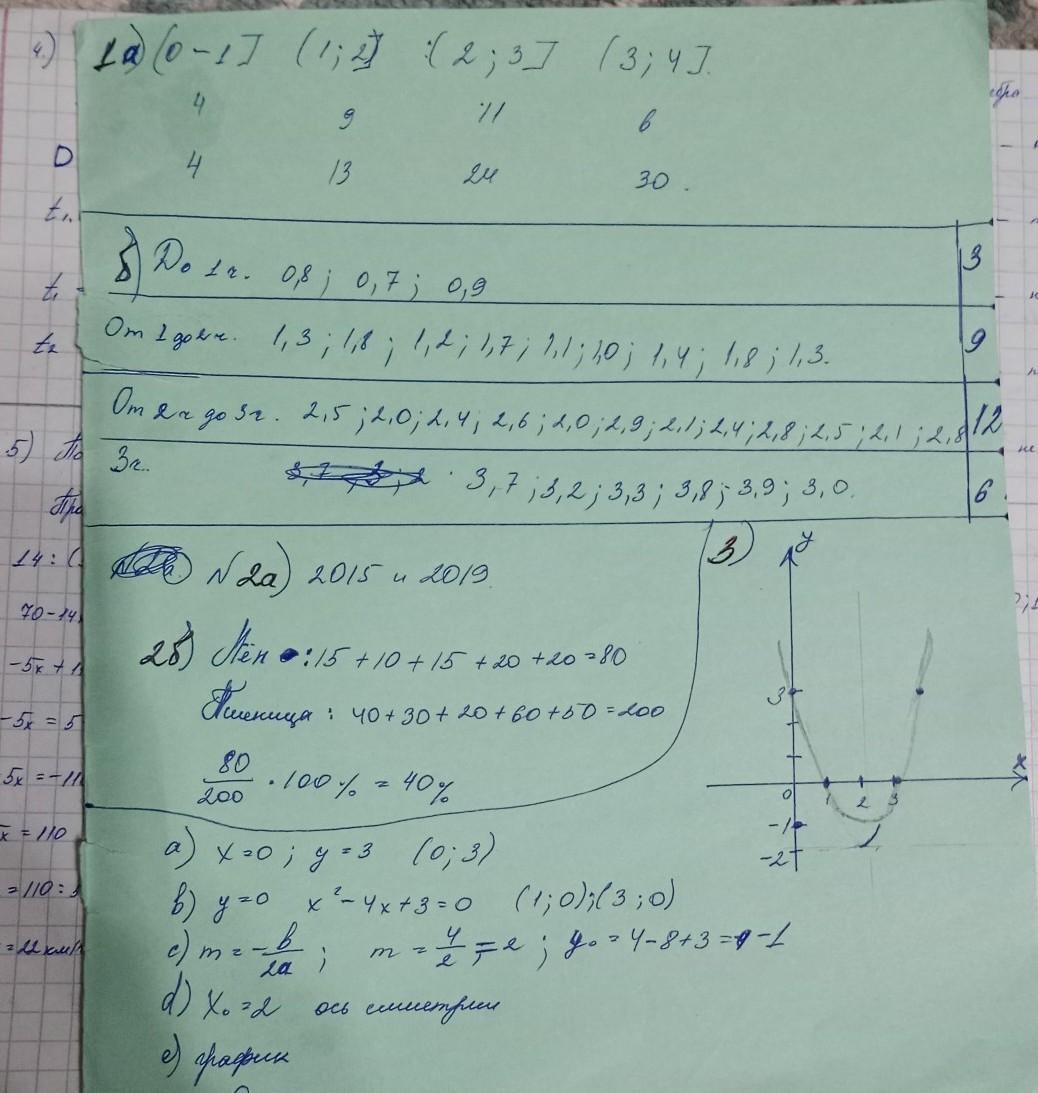 4.)
1а) (0-1] (1;2] (2;3] (3;4].
4 9 11 6
4 13 24 30.
D
t₁.
б) До 1 ч. 0,8; 0,7; 0,9 3
t₁ =
От 1 до 2 ч. 1,3; 1,8; 1,2; 1,7; 1,1; 1,0; 1,4; 1,8; 1,3. 9
t₂
От 2 ч до 3 ч. 2,5; 2,0; 2,4; 2,6; 2,0; 2,9; 2,1; 2,4; 2,8; 2,5; 2,1; 2,8 12
5) По
3 ч. 3,7; 3,2; 3,3; 3,8; 3,9; 3,0. 6
Пра
14 : (
N2а) 2015 и 2019.
3) y
70-14
2б) Лён : 15 + 10 + 15 + 20 + 20 = 80
-5x + 1
Пшеница : 40 + 30 + 20 + 60 + 50 = 200
3
-5x = 5
80/200 · 100% = 40%
5x = -11
x
0 1 2 3
-1
-2
x = 110
а) x = 0; y = 3 (0; 3)
= 110 :
b) y = 0 x² - 4x + 3 = 0 (1; 0); (3; 0)
= 22 км/
c) m = -b/2a; m = 4/2 = 2; y₀ = 4 - 8 + 3 = -1
d) x₀ = 2 ось симетрии
e) график